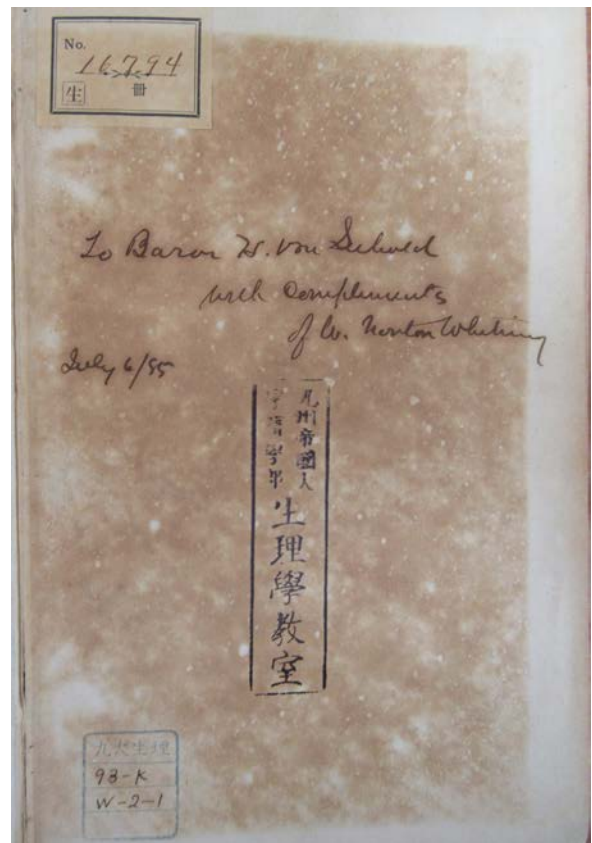 No.
16,794
生 冊
To Baron H. von Siebold
with compliments
of W. Norton Whitney
July 6/85
九州帝國大
學醫學部
生理學教室
九大生理
93-K
W-2-1